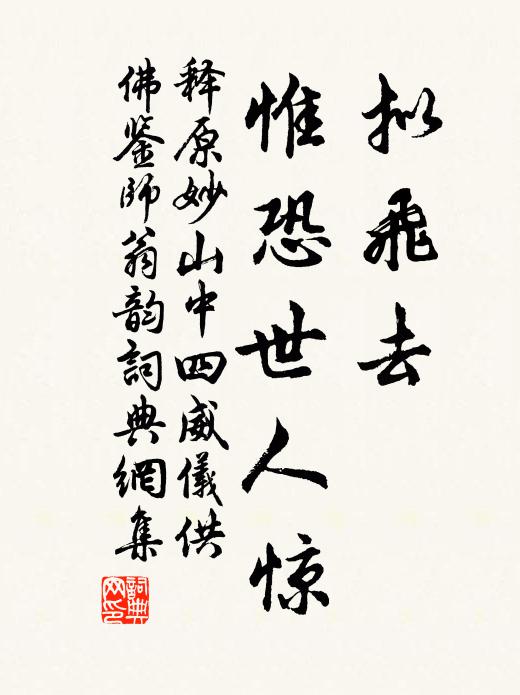 拟飛去
惟恐世人惊
释原妙山中四威儀供
佛鉴師翁韵詞典網集
詞典
网印